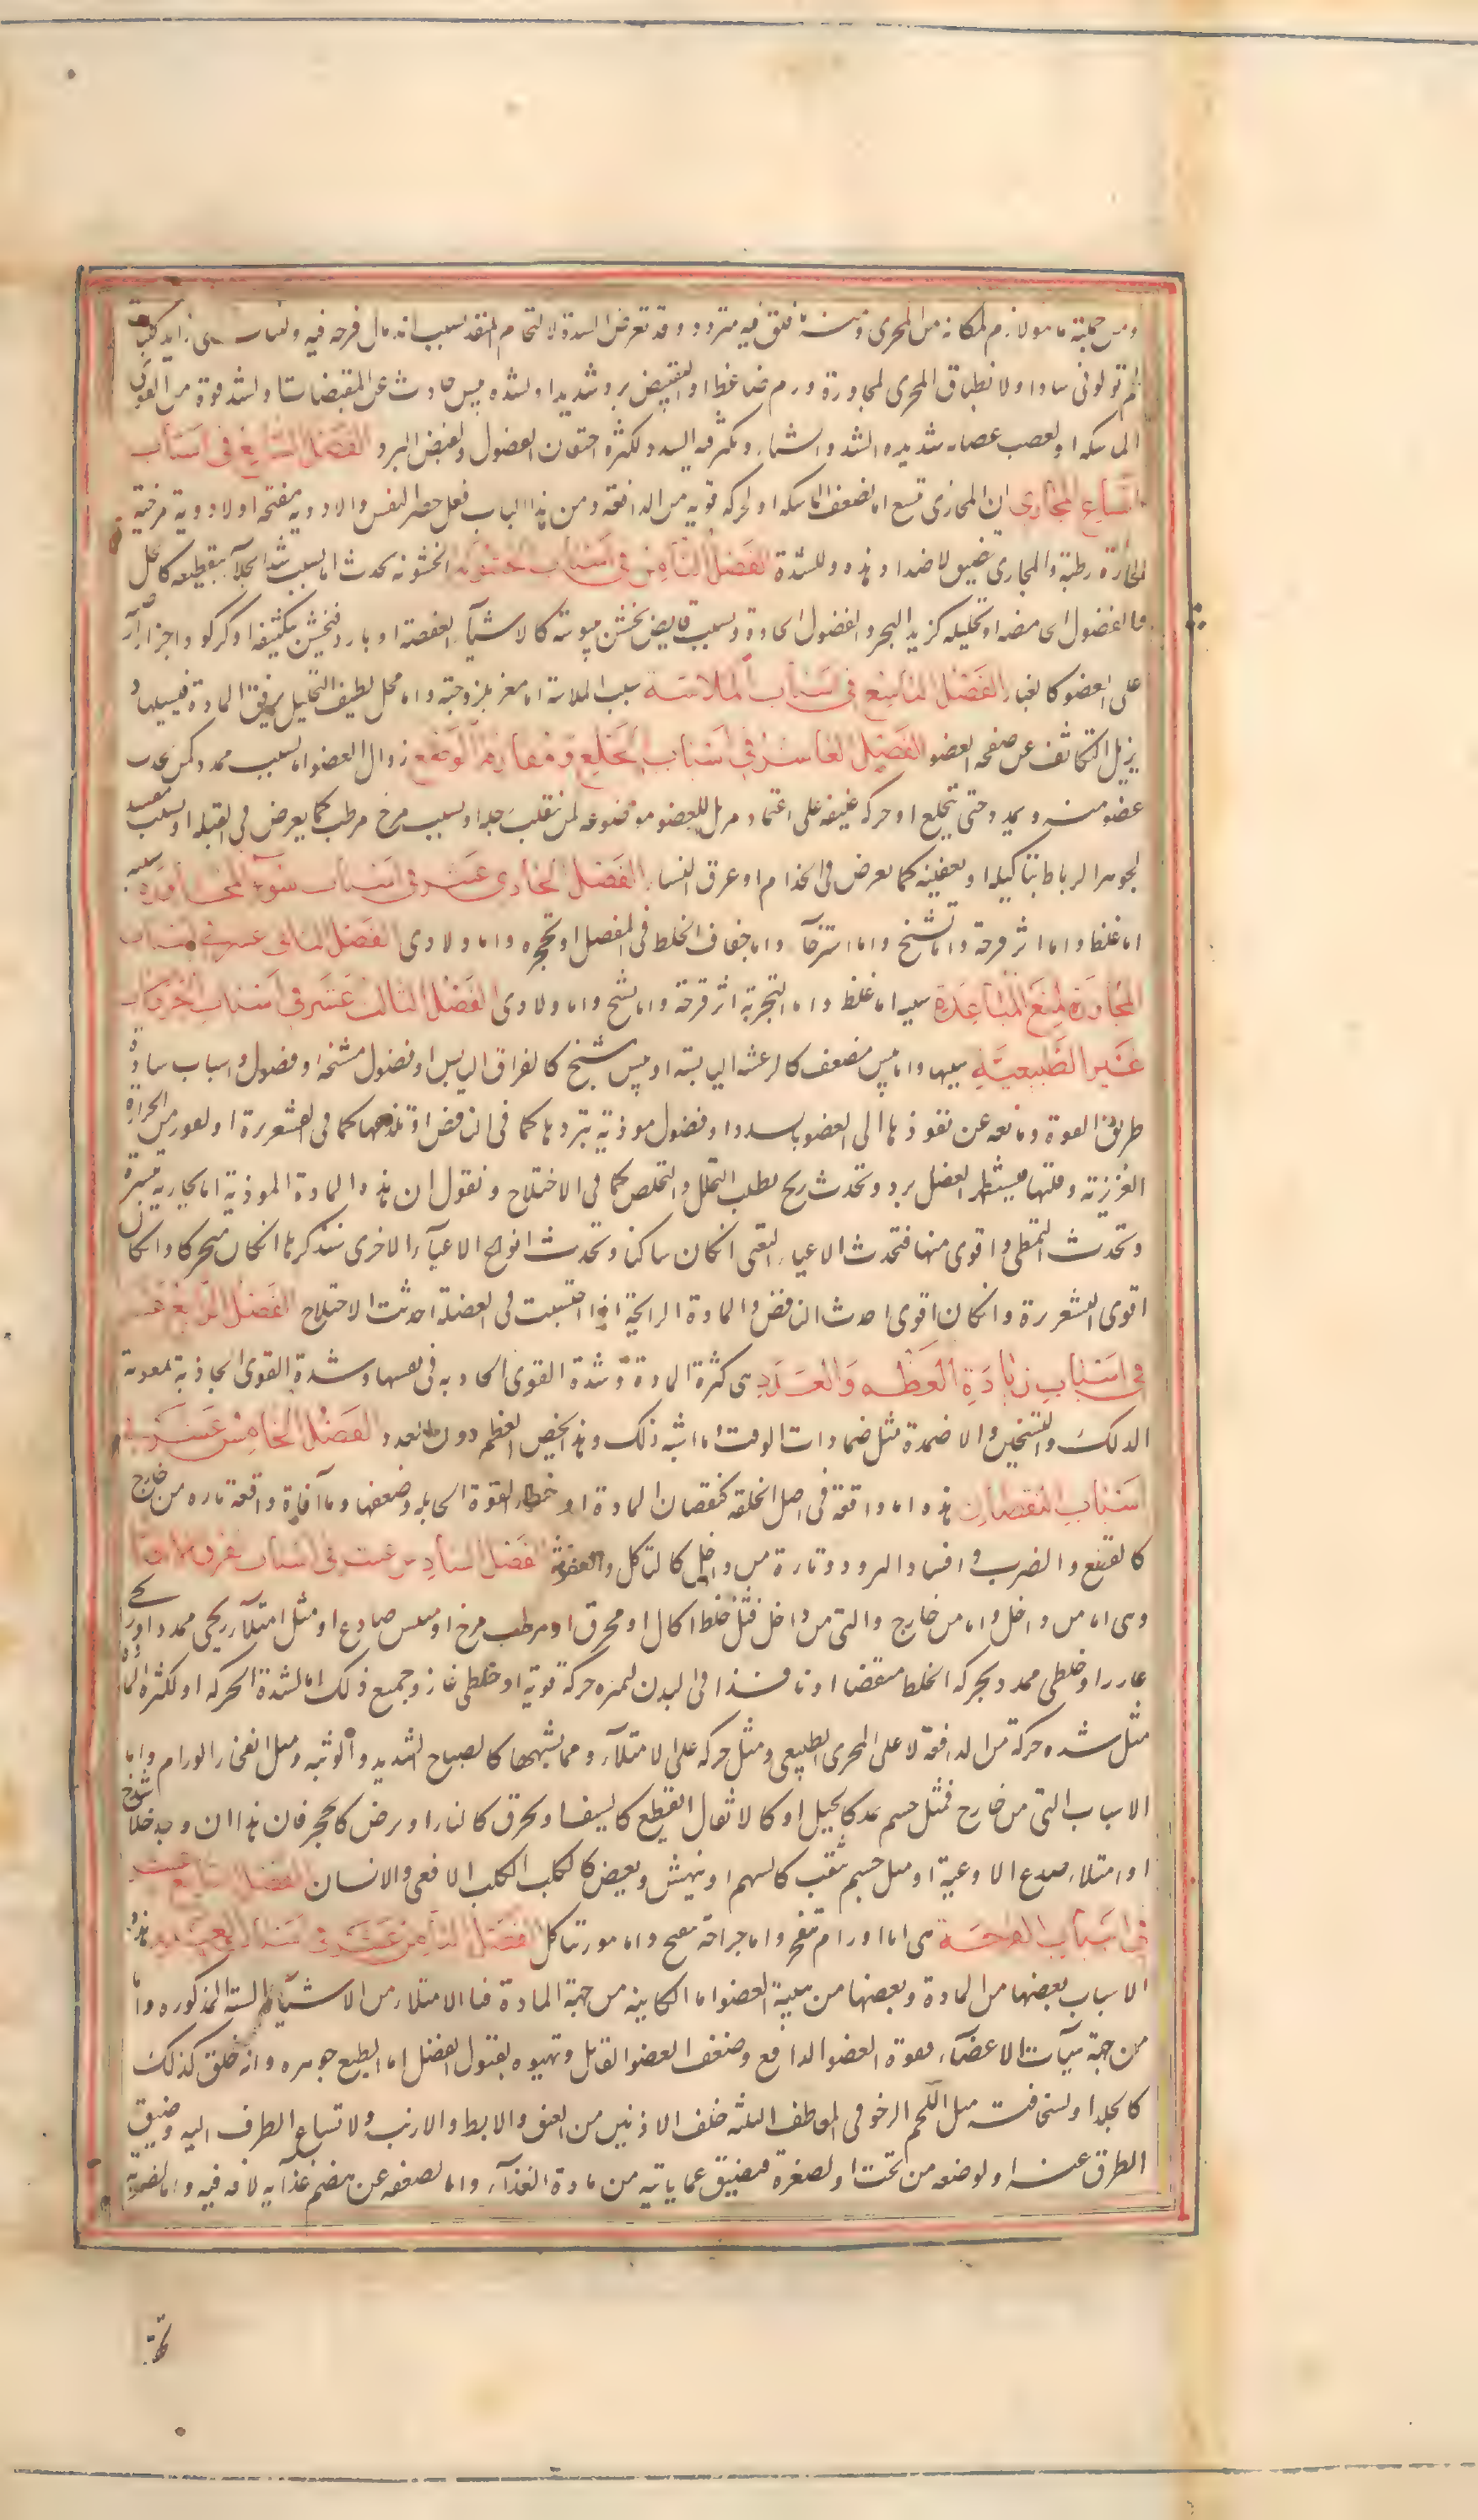 ومن جملته ما هو لازم لمكانه من المجرى ومنه قلق فيه متردد وقد تعرض السدة لالتحام المنفذ بسبب اندمال قرحه فيه ولنبات شى زايد كنبات
لحم تولولى سادا ولا نطباق المجرى لمجاورة ورم ضاغط او لتقبيض برد شديد او لشده يبس حادث عن المقبضات او لشد قوة من القوى
الماسكه او لعصب عصابه شديده الشد والشتاء وتكثر فيه السدد لكثرة احتقان الفضول ولقبض البرد الفصل السابع فى اسباب
اتساع المجارى ان المجارى تتسع اما لضعف الماسكه او لحركه قويه من الدافعه ومن هذا الباب فعل حصر النفس والادوية مفتحه او لادوية مرخية
الحارة رطبة والمجارى تضيق لاضداد هذه وللسدة الفصل الثامن فى اسباب الخشونة الخشونه تحدث اما بسبب شد الجلاء بتقطيعه كالخل
والفضول الحامضه او تحليله كزبد البحر والفضول الحادة وبسبب قابض يخشن بيبوسته كالاشيآء العفصة او بارد فيخشن بتكثيفه او كركود اجزاء ارضيه
على العضو كالغبار الفصل التاسع فى اسباب الملاسة سبب الملاسة اما مغر بلزوجته واما محلل لطيف التحليل يرقق المادة فيسيلها و
يزيل التكاثف عن صفحه العضو الفصل العاشر فى اسباب الخلع ومفارقة الوضع زوال العضو اما بسبب ممدد كمن يجذب
عضو منه ويمدد حتى ينخلع او حركه عنيفه على اعتماد مزيل للعضو موضوعه لمن تنقلب رجله او بسبب مرخ مرطب كما يعرض فى القيله او بسبب مفسد
لجوهر الرباط بتاكيله او تعفينه كما يعرض فى الجذام او عرق النسا الفصل الحادى عشر فى اسباب سوء المجاورة سببه
اما غلظ واما اثر قرحة واما تشنج واما استرخآء واما جفاف الخلط فى المفصل او تحجره واما ولادى الفصل الثانى عشر فى اسباب
المجاورة لمنع المباعدة سببه اما غلظ واما التحجر به اثر قرحة واما تشنج واما ولادى الفصل الثالث عشر فى اسباب الحركات
غير الطبيعية سببها واما يبس مضعف كالرعشه اليابسة او يبس مشنج كالفراق اليابس او فضول مشنجه او فضول واسباب سادة
طريق القوة ومانعه عن نفوذها الى العضو باسددا وفضول موذية تبردها كما فى النافض او تلذعها كما فى القشعريرة او لغور من الحرارة
الغريزية وقلتها فيستظهر الفضل برد وتحدث ريح بطلب التحلل والتخلص كما فى الاختلاج ونقول ان هذه المادة الموذية اما بخارية يسيرة
وتحدث التمطى واقوى منها فتحدث الاعياء التعبى ان كان ساكنا وتحدث انواع الاعيآء الاخرى سنذكرها ان كان متحركا وان كان
اقوى القشعريرة وان كان اقوى احدث النافض والمادة الرايحية اذا احتبست فى العضلة احدثت الاختلاج الفصل الرابع عشر
فى اسباب زيادة العظم والعدد هى كثرة المادة وشدة القوى الجاذبه فى نفسها وشدة القوى الجاذبة بمعونة
الدلك والتسخين والاضمدة مثل ضمادات الزفت وما اشبه ذلك وهذا يخص العظم دون العدد الفصل الخامس عشر فى
اسباب النقصان هذه اما واقعة فى اصل الخلقه كنقصان المادة او خطا القوة الحايله وضعفها وما آفاة واقعة تاره من خارج
كالقطع والضرب وافساد البرد وتارة من داخل كالتاكل والعفونة الفصل السادس عشر فى اسباب تفرق الاتصال
وهى اما من داخل واما من خارج والتى من داخل فمثل خلط اكال او محرق او مرطب مرخ او ميبس صادع او مثل امتلآء ريحى ممدد او ريح
غارز او خلطى ممدد بحركه الخلط منفضا او نافذا فى البدن لتميزه حركة قوية او خلطى غارز وجميع ذلك اما لشدة الحركه او لكثرة المادة
مثل شده حركة من الدافعة لا على المجرى الطبيعى ومثل حركه على الامتلآء ومما يشبهها كالصياح الشديد والوثبه ومثل انفجار الورام واما
الاسباب التى من خارج فمثل جسم يمد كالحبل او كالاثقال او يقطع كالسيف او يحرق كالنار او يرض كالحجر فان هذا ان وجد خلا شدخ
او امتلاء صدع الاوعية او مثل جسم يثقب كالسهم او ينهش ويعض كالكلب الكلب الافعى والانسان الفصل السابع عشر
فى اسباب القرحة هى اما اورام تنفجر واما جراحة تقيح واما بثور تتاكل الفصل الثامن عشر فى اسباب الورم هذه
الاسباب بعضها من المادة وبعضها من هيئة العضو اما الكاينه من جهة المادة فالامتلاء من الاشيآء الستة المذكوره واما
من جهة هيآت الاعضآء فقوة العضو الدافع وضعف العضو القابل وتهيوه لقبول الفضل اما بطبع جوهره وانه خلق كذلك
كالجلد او لسخافته مثل اللحم الرخو فى المعاطف الثلثه خلف الاذنين من العنق والابط والاربيه ولاتساع الطرف اليه وضيق
الطرق عنه او لوضعه من تحت او لصغره فيضيق عما ياتيه من مادة الغذآء واما لضعفه عن هضم غذآيه لافه فيه واما لضربه